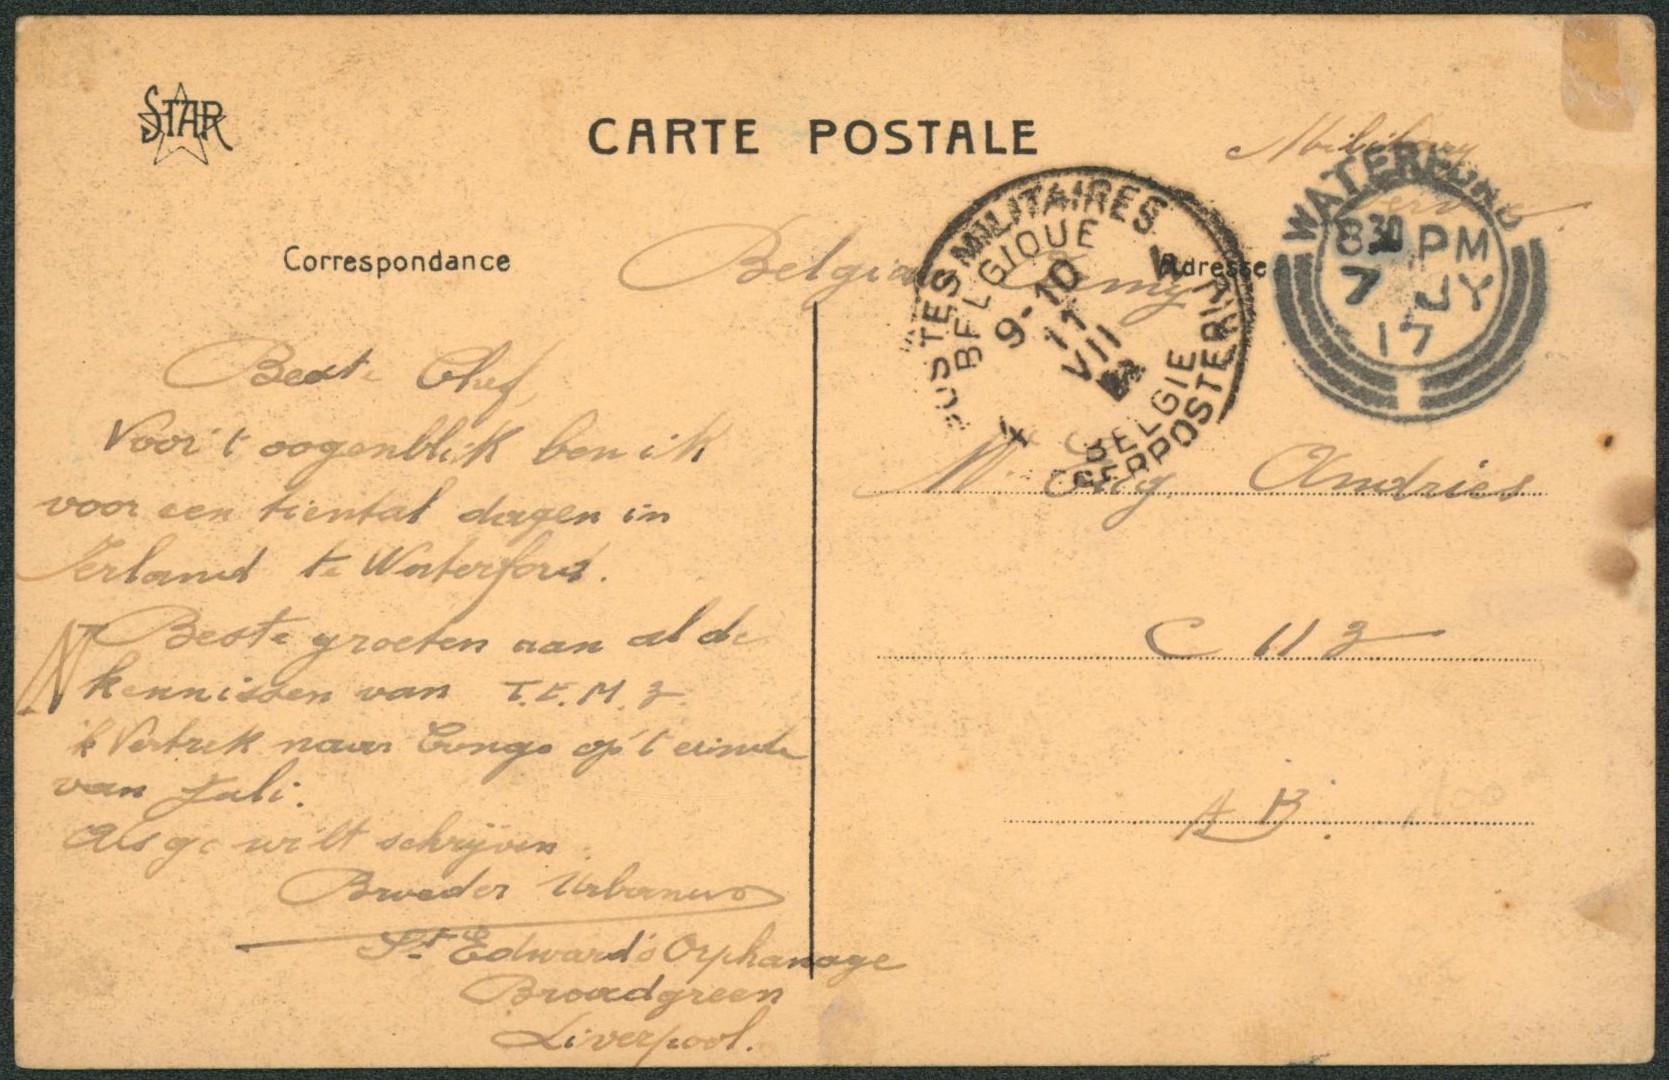 STAR
CARTE POSTALE
Military
Service
Correspondance
Adresse
Belgian Army
POSTES MILITAIRES
BELGIQUE
9-10
11
VII
BELGIE
LEGERPOSTERIJ
4
WATERFORD
830 PM
7 JY
17
Beste Chef,
Voor't oogenblik ben ik
voor een tiental dagen in
Ierland te Waterford.
Beste groeten aan al de
kennissen van
ik Vertrek naar Congo op't einde
van Juli.
Als ge wilt schrijven
Broeder Urbanus
St Edward's Orphanage
Broadgreen
Liverpool.
M. Eug. Andries
C 113
A B.